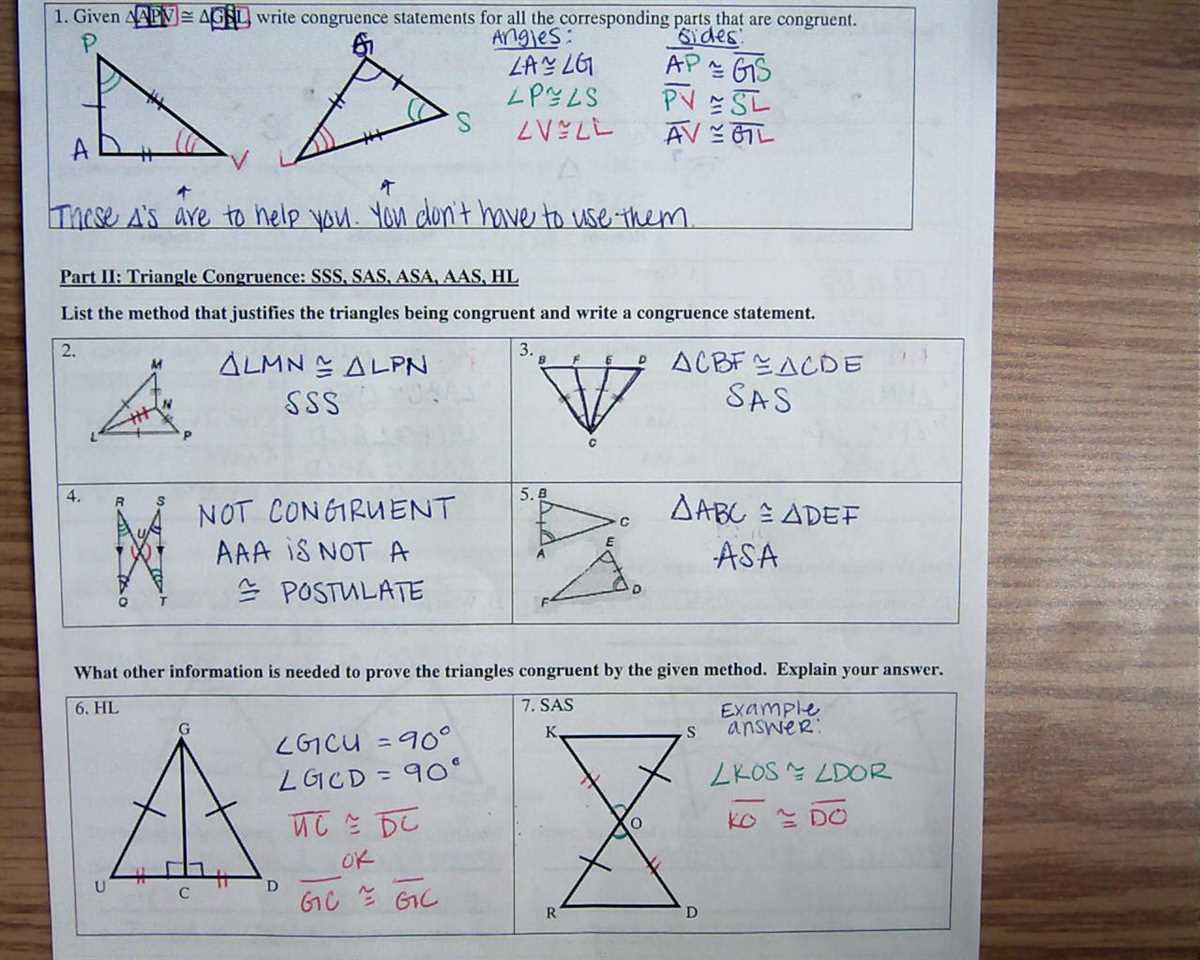 1. Given ΔAPV ≅ ΔGSL, write congruence statements for all the corresponding parts that are congruent.
P
A
V
G
L
S
Angles:
∠A≅∠G
∠P≅∠S
∠V≅∠L
Sides:
AP ≅ GS
PV ≅ SL
AV ≅ GL
These Δ's are to help you. You don't have to use them.
Part II: Triangle Congruence: SSS, SAS, ASA, AAS, HL
List the method that justifies the triangles being congruent and write a congruence statement.
2.
M
N
L
P
ΔLMN ≅ ΔLPN
SSS
3.
B F E D
C
ΔCBF ≅ ΔCDE
SAS
4.
R S
U
Q T
NOT CONGRUENT
AAA iS NOT A
≅ POSTULATE
5.
B
C
A
E
D
F
ΔABC ≅ ΔDEF
ASA
What other information is needed to prove the triangles congruent by the given method. Explain your answer.
6. HL
G
U
C
D
∠GCU = 90°
∠GCD = 90°
UC ≅ DC
OR
GC ≅ GC
7. SAS
K
S
O
R
D
Example
answer:
∠KOS ≅ ∠DOR
KO ≅ DO